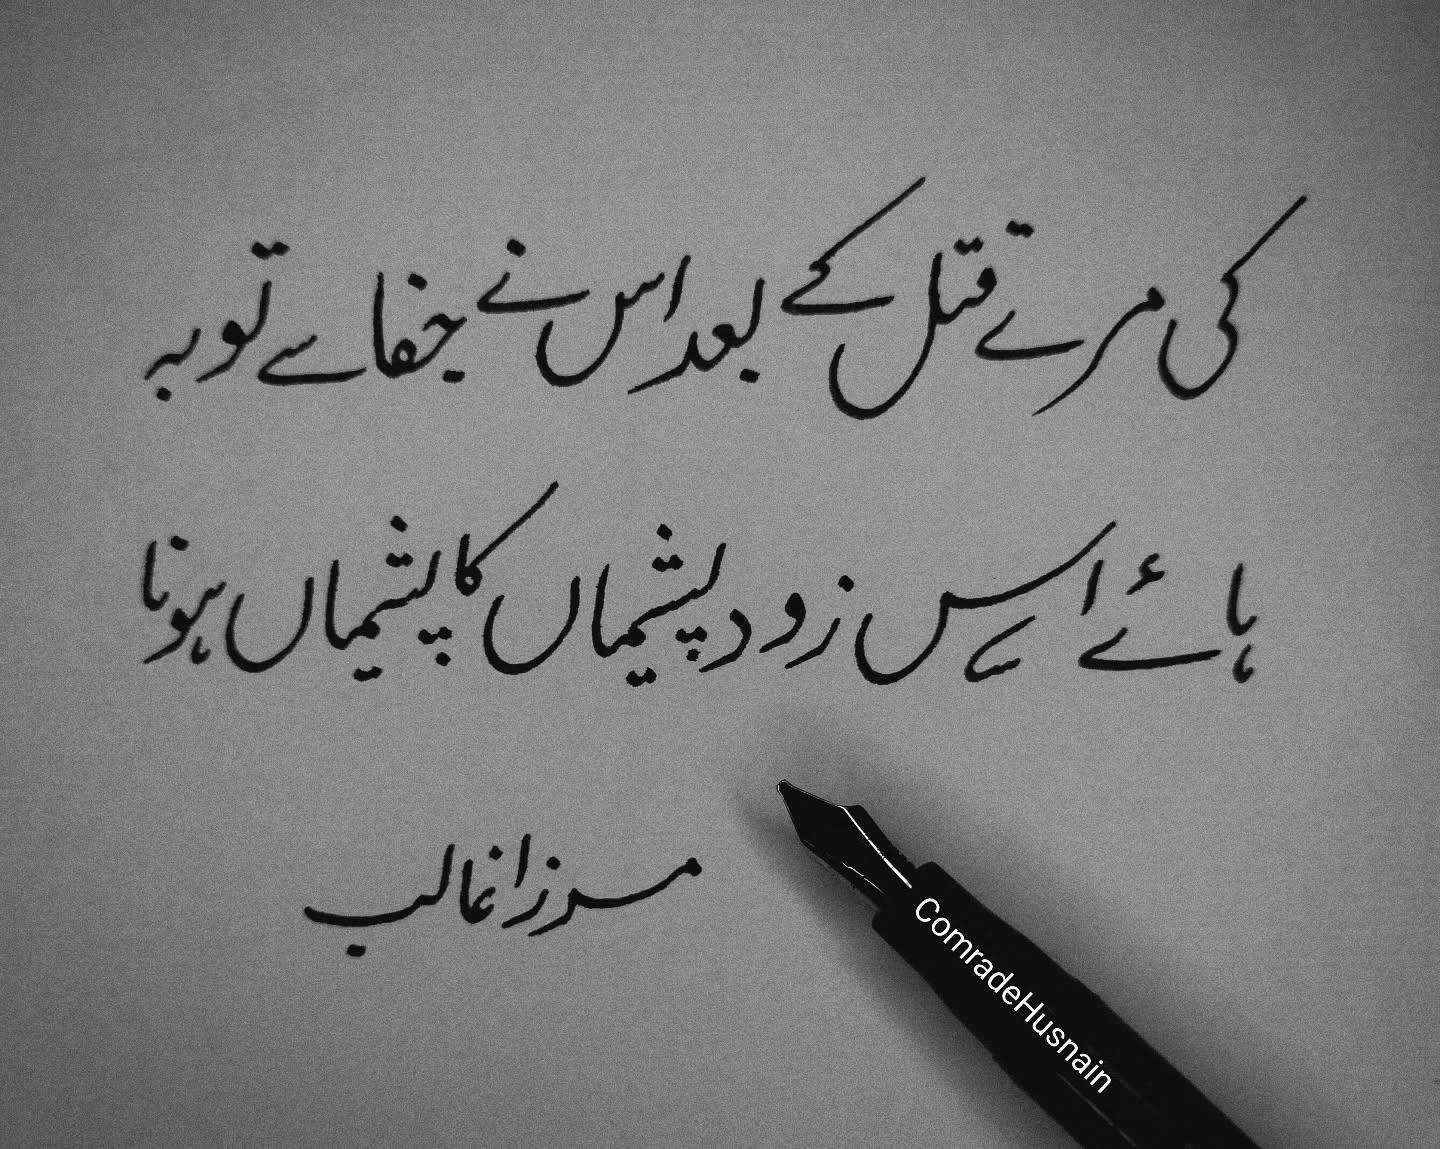 کی مرے قتل کے بعد اس نے جفا سے توبہ
ہائے اس زود پشیماں کا پشیماں ہونا
مرزا غالب
ComradeHusnain